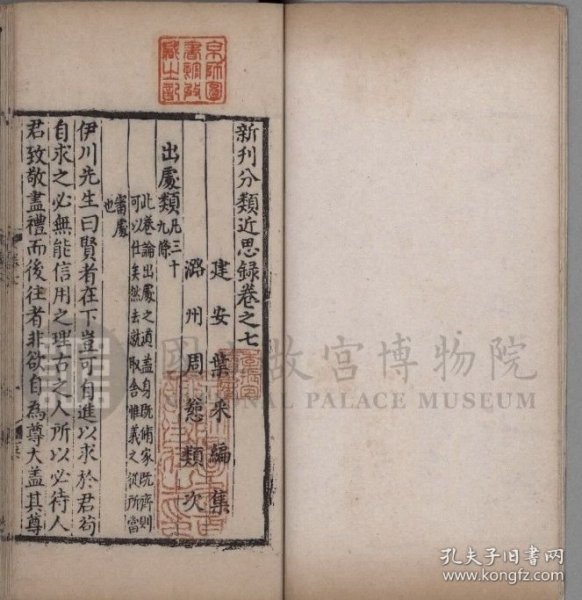 新刊分類近思錄卷之七
建安葉采編集
潞州周慈類次
出處類凡三十九條
此卷論出處之道蓋身既脩家既齊則
可以仕矣然去就取舍惟義之從所當
審處也
伊川先生曰賢者在下豈可自進以求於君苟
自求之必無能信用之理古之人所以必待人
君致敬盡禮而後往者非欲自為尊大蓋其尊
京師圖書館收藏之記
故宮博物院
NATIONAL PALACE MUSEUM
孔夫子旧书网
www.kongfz.com